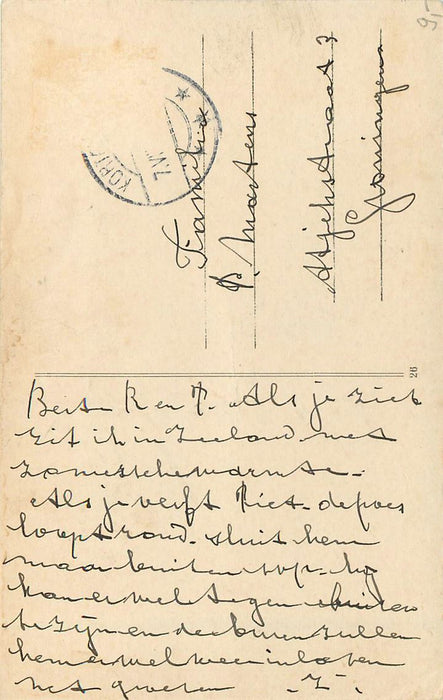 Familie
P. Martens
Atjehstraat 3
Groningen
KORT
26
Beste R en P. Als je ziet
zit ik in Zeeland met
zomersche warmte.
Als je verft Piet. de poes
loopt rond. sluit hem
maar buiten op. hij
kan er wel tegen buiten
te zijn en de buren zullen
hem er wel weer in laten
met groeten